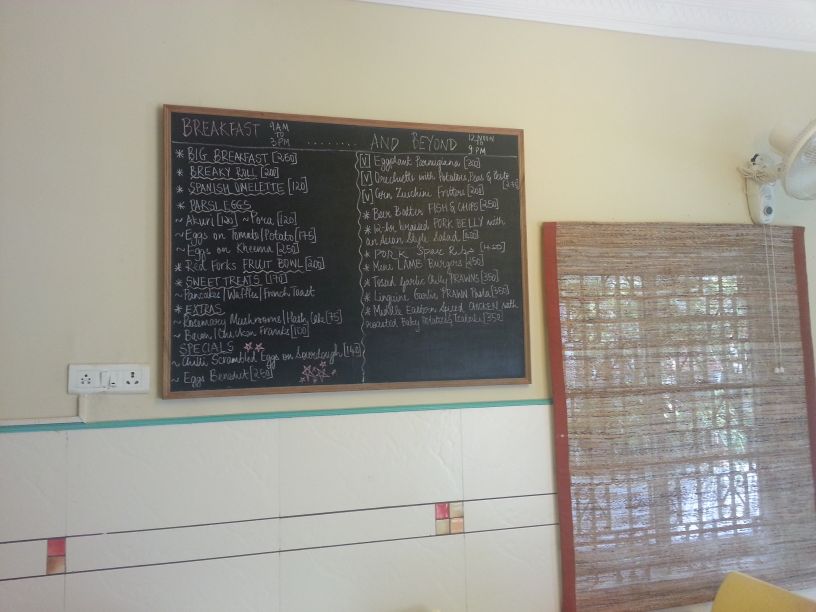 BREAKFAST 9AM TO 3PM ........ AND BEYOND 12 NOON TO 9 PM
* BIG BREAKFAST [250]
* BREAKY ROLL [200]
* SPANISH OMELETTE [120]
* PARSI EGGS
~ Akuri [120] ~ Pora [120]
~ Eggs on Tomato/Potato [175]
~ Eggs on Kheema [250]
* Red Forks FRUIT BOWL [200]
* SWEET TREATS [170]
~ Pancakes/Waffles/French Toast
* EXTRAS
~ Rosemary Mushrooms/Hash Cake [75]
~ Bacon/Chicken Franks [100]
SPECIALS
~ Chilli Scrambled Eggs on Sourdough [140]
~ Eggs Benedict [250]
[V] Eggplant Parmigiana
[V] Orecchiette with Potatoes, Peas & Pesto
[V] Corn Zucchini Fritters
* Beer Batter FISH & CHIPS [250]
* 12-hr braised PORK BELLY with
an Asian Style Salad
* PORK Spare Ribs
* Mini LAMB Burgers
* Tossed Garlic Chilly PRAWNS [350]
* Linguine Garlic PRAWN Pasta [350]
* Middle Eastern Spiced CHICKEN with
roasted Baby Potatoes [350]